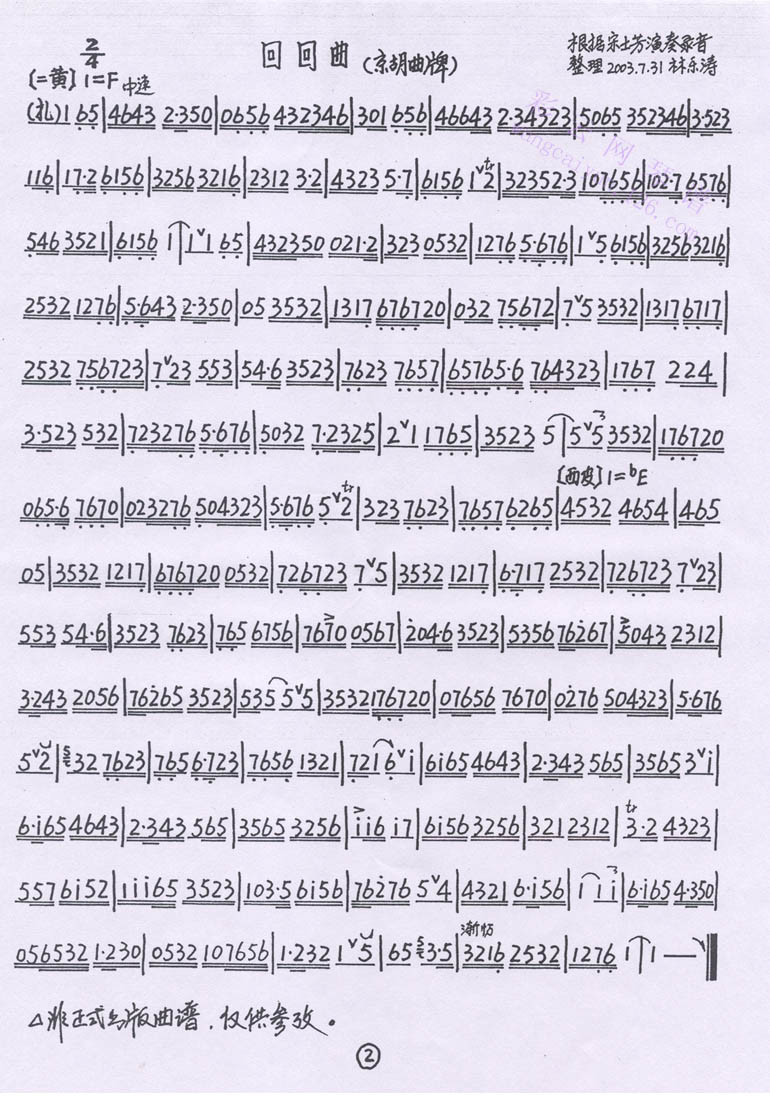 2/4 回回曲(京胡曲牌) 根据宋士芳演奏录音
〔二黄〕1=F 中速 整理2003.7.31 林乐涛
(扎)1 65|4643 2·350|0656 432346|301 656|46643 2·34323|5065 352346|3·523
116|17·2 6156|3256 3216|2312 3·2|4323 5·7|6156 1ᵛ2 tr|32352·3 107656|102·7 6576|
546 3521|6156 1|1ᵛ1 65|432350 021·2|323 0532|1276 5·676|1ᵛ5 6156|3256 3216|
2532 1276|5·643 2·350|05 3532|1317 676720|032 75672|7ᵛ5 3532|1317 6717|
2532 756723|7ᵛ23 553|54·6 3523|7623 7657|65765·6 764323|1767 224|
3·523 532|723276 5·676|5032 7·2325|2ᵛ1 1765|3523 5|5ᵛ5 3 3532|176720
〔西皮〕1=ᵇE
065·6 7670|023276 504323|5·676 5ᵛ2 tr|323 7623|7657 6265|4532 4654|465
05|3532 1217|676720 0532|726723 7ᵛ5|3532 1217|6·717 2532|726723 7ᵛ23|
553 54·6|3523 7623|765 6756|7670 0567|204·6 3523|5356 76267|5043 2312|
3·243 2056|76265 3523|535 5ᵛ5|3532176720|07656 7670|0276 504323|5·676
5ᵛ2|32 7623|765 6·723|7656 1321|7216ᵛi|6i65 4643|2·343 565|3565 3ᵛi|
6·i65 4643|2·343 565|3565 3256|ii6 i7|6i56 3256|321 2312|tr 3·2 4323|
557 6i52|1ii65 3523|103·5 6i56|76276 5ᵛ4|4321 6·i56|1 1 i 3|6·i65 4·350|
056532 1·230|0532 107656|1·232 1ᵛ5|65 3·5|渐慢 3216 2532|1276 1|1 —‖
△非正式出版曲谱,仅供参考。
②